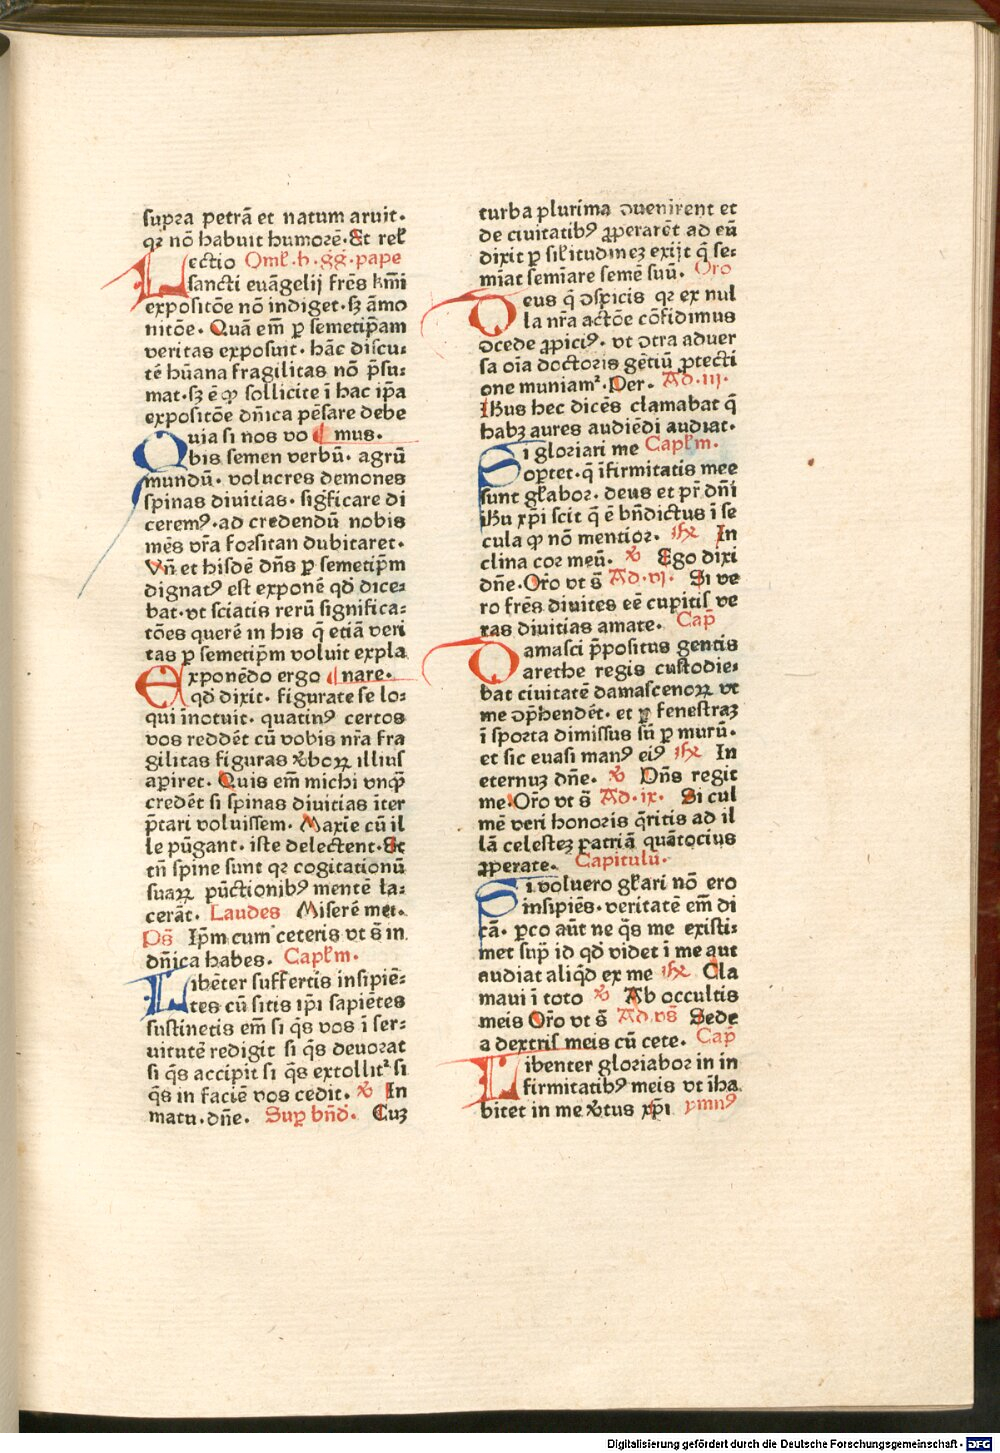 supra petrā et natum aruit.
qꝛ nō habuit humorē. Et relꝭ
Lectio Omlꝭ. b. gg̅. pape
sancti euāgelij frēs kmi̅
expositōe nō indiget. sꝫ āmo
nitōe. Quā em̅ ꝑ semetip̅am
veritas exposuit. hāc discu⸗
tē hūana fragilitas nō p̄su⸗
mat. sꝫ ē ꝙ sollicite ī hac ip̅a
expositōe dn̅ica pēsare debe
Quia si nos vo ¶ mus.
bis semen verbū. agrū
mundū. volucres demones
spinas diuitias. sigficare di
ceremꝰ. ad credendū nobis
mēs vr̅a forsitan dubitaret.
Vn̅ et hisdē dn̅s ꝑ semetip̅m
dignatꝰ est exponē qd̅ dice⸗
bat. vt sciatis rerū significa⸗
tōes querē in his q̄ etiā veri
tas ꝑ semetip̅m voluit expla
Exponēdo ergo ¶ nare.
qd̅ dixit. figurate se lo⸗
qui īnotuit. quatinꝰ certos
vos reddēt cū vobis nr̅a fra
gilitas figuras v̾boꝝ illius
apiret. Quis em̅ michi vnq̄
credēt si spinas diuitias īter
p̄tari voluissem. Maxīe cū il
le pūgant. iste delectent. Et
tn̅ spine sunt qꝛ cogitationū
suaꝝ pūctionibꝰ mentē la⸗
cerāt. Laudes Miserē mei.
Ps̅ Ip̅m cum ceteris vt s̅ in
dn̅ica habes. Capl̅m.
Libēter suffertis insipiē⸗
tes cū sitis ip̅i sapiētes
sustinetis em̅ si q̄s vos ī ser⸗
uitutē redigit si q̄s deuorat
si q̄s accipit si q̄s extollit᷑ si
q̄s in faciē vos cedit. ꝟ In
matu. dn̅e. Suꝑ bn̅d. Cuꝫ
turba plurima ꝯuenirent et
de ciuitatibꝰ ꝓperarēt ad eū
dixit ꝑ silꝭitudineꝫ exijt q̄ se⸗
miat semīare semē suū. Oro
Deus q̄ ꝯspicis qꝛ ex nul
la nr̅a actōe cōfidimus
ꝯcede ꝓpiciꝰ. vt ꝯtra aduer
sa oīa doctoris gētiū ꝓtecti
one muniam᷑. Per. Ad. iij.
Ihus hec dicēs clamabat q̄
habꝫ aures audiēdi audiat.
Si gloriari me Capl̅m.
oportet. q̄ īfirmitatis mee
sunt gl̅abor. deus et pr̅ dn̅i
ihu xp̅i scit q̄ ē bn̅dictus ī se
cula ꝙ nō mentior. ꝶ In
clina cor meū. ꝟ Ego dixi
dn̅e. Oro̅ vt s̅ Ad. vi. Si ve
ro frēs diuites eē cupitis ve
ras diuitias amate. Cap̅
Damasci p̄positus gentis
arethe regis custodie⸗
bat ciuitatē damascenoꝝ vt
me ꝯp̄hendēt. et ꝑ fenestraꝫ
ī sporta dimissus sū ꝑ murū.
et sic euasi manꝰ eiꝰ ꝶ In
eternuꝫ dn̅e. ꝟ Dn̅s regit
me. Oro̅ vt s̅ Ad. ix. Si cul
mē veri honoris q̄ritis ad il
lā celesteꝫ patriā quātocius
ꝓperate. Capitulū.
Si voluero gl̅ari nō ero
insipiēs. veritatē em̅ di
cā. ꝑco aūt ne q̄s me existi⸗
met sup̄ id qd̅ videt ī me aut
audiat aliqd̅ ex me ꝶ Cla
maui ī toto ꝟ Ab occultis
meis Oro̅ vt s̅ Ad. vs̅ Sede
a dextris meis cū cete. Cap̅
Libenter gloriabor in in
firmitatibꝰ meis vt īha
bitet in me v̾tus xp̅i ymnꝰ
Digitalisierung gefördert durch die Deutsche Forschungsgemeinschaft - DFG